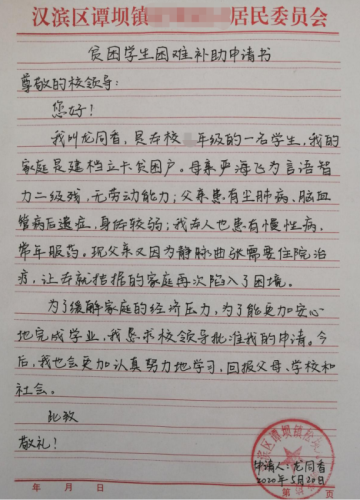 汉滨区谭坝镇 居民委员会
贫困学生困难补助申请书
尊敬的校领导:
您好!
我叫龙同香,是本校 年级的一名学生,我的
家庭是建档立卡贫困户。母亲严海飞为言语智
力二级残,无劳动能力;父亲患有尘肺病、脑血
管病后遗症,身体较弱;我本人也患有慢性病,
常年服药。现父亲又因为静脉曲张需要住院治
疗,让本就拮据的家庭再次陷入了困境。
为了缓解家庭的经济压力,为了能更加安心
地完成学业,我恳求校领导批准我的申请。今
后,我也会更加认真努力地学习,回报父母、学校和
社会。
此致
敬礼!
滨区谭坝镇
申请人:龙同香
2020年5月20日
年 月 日 第 页